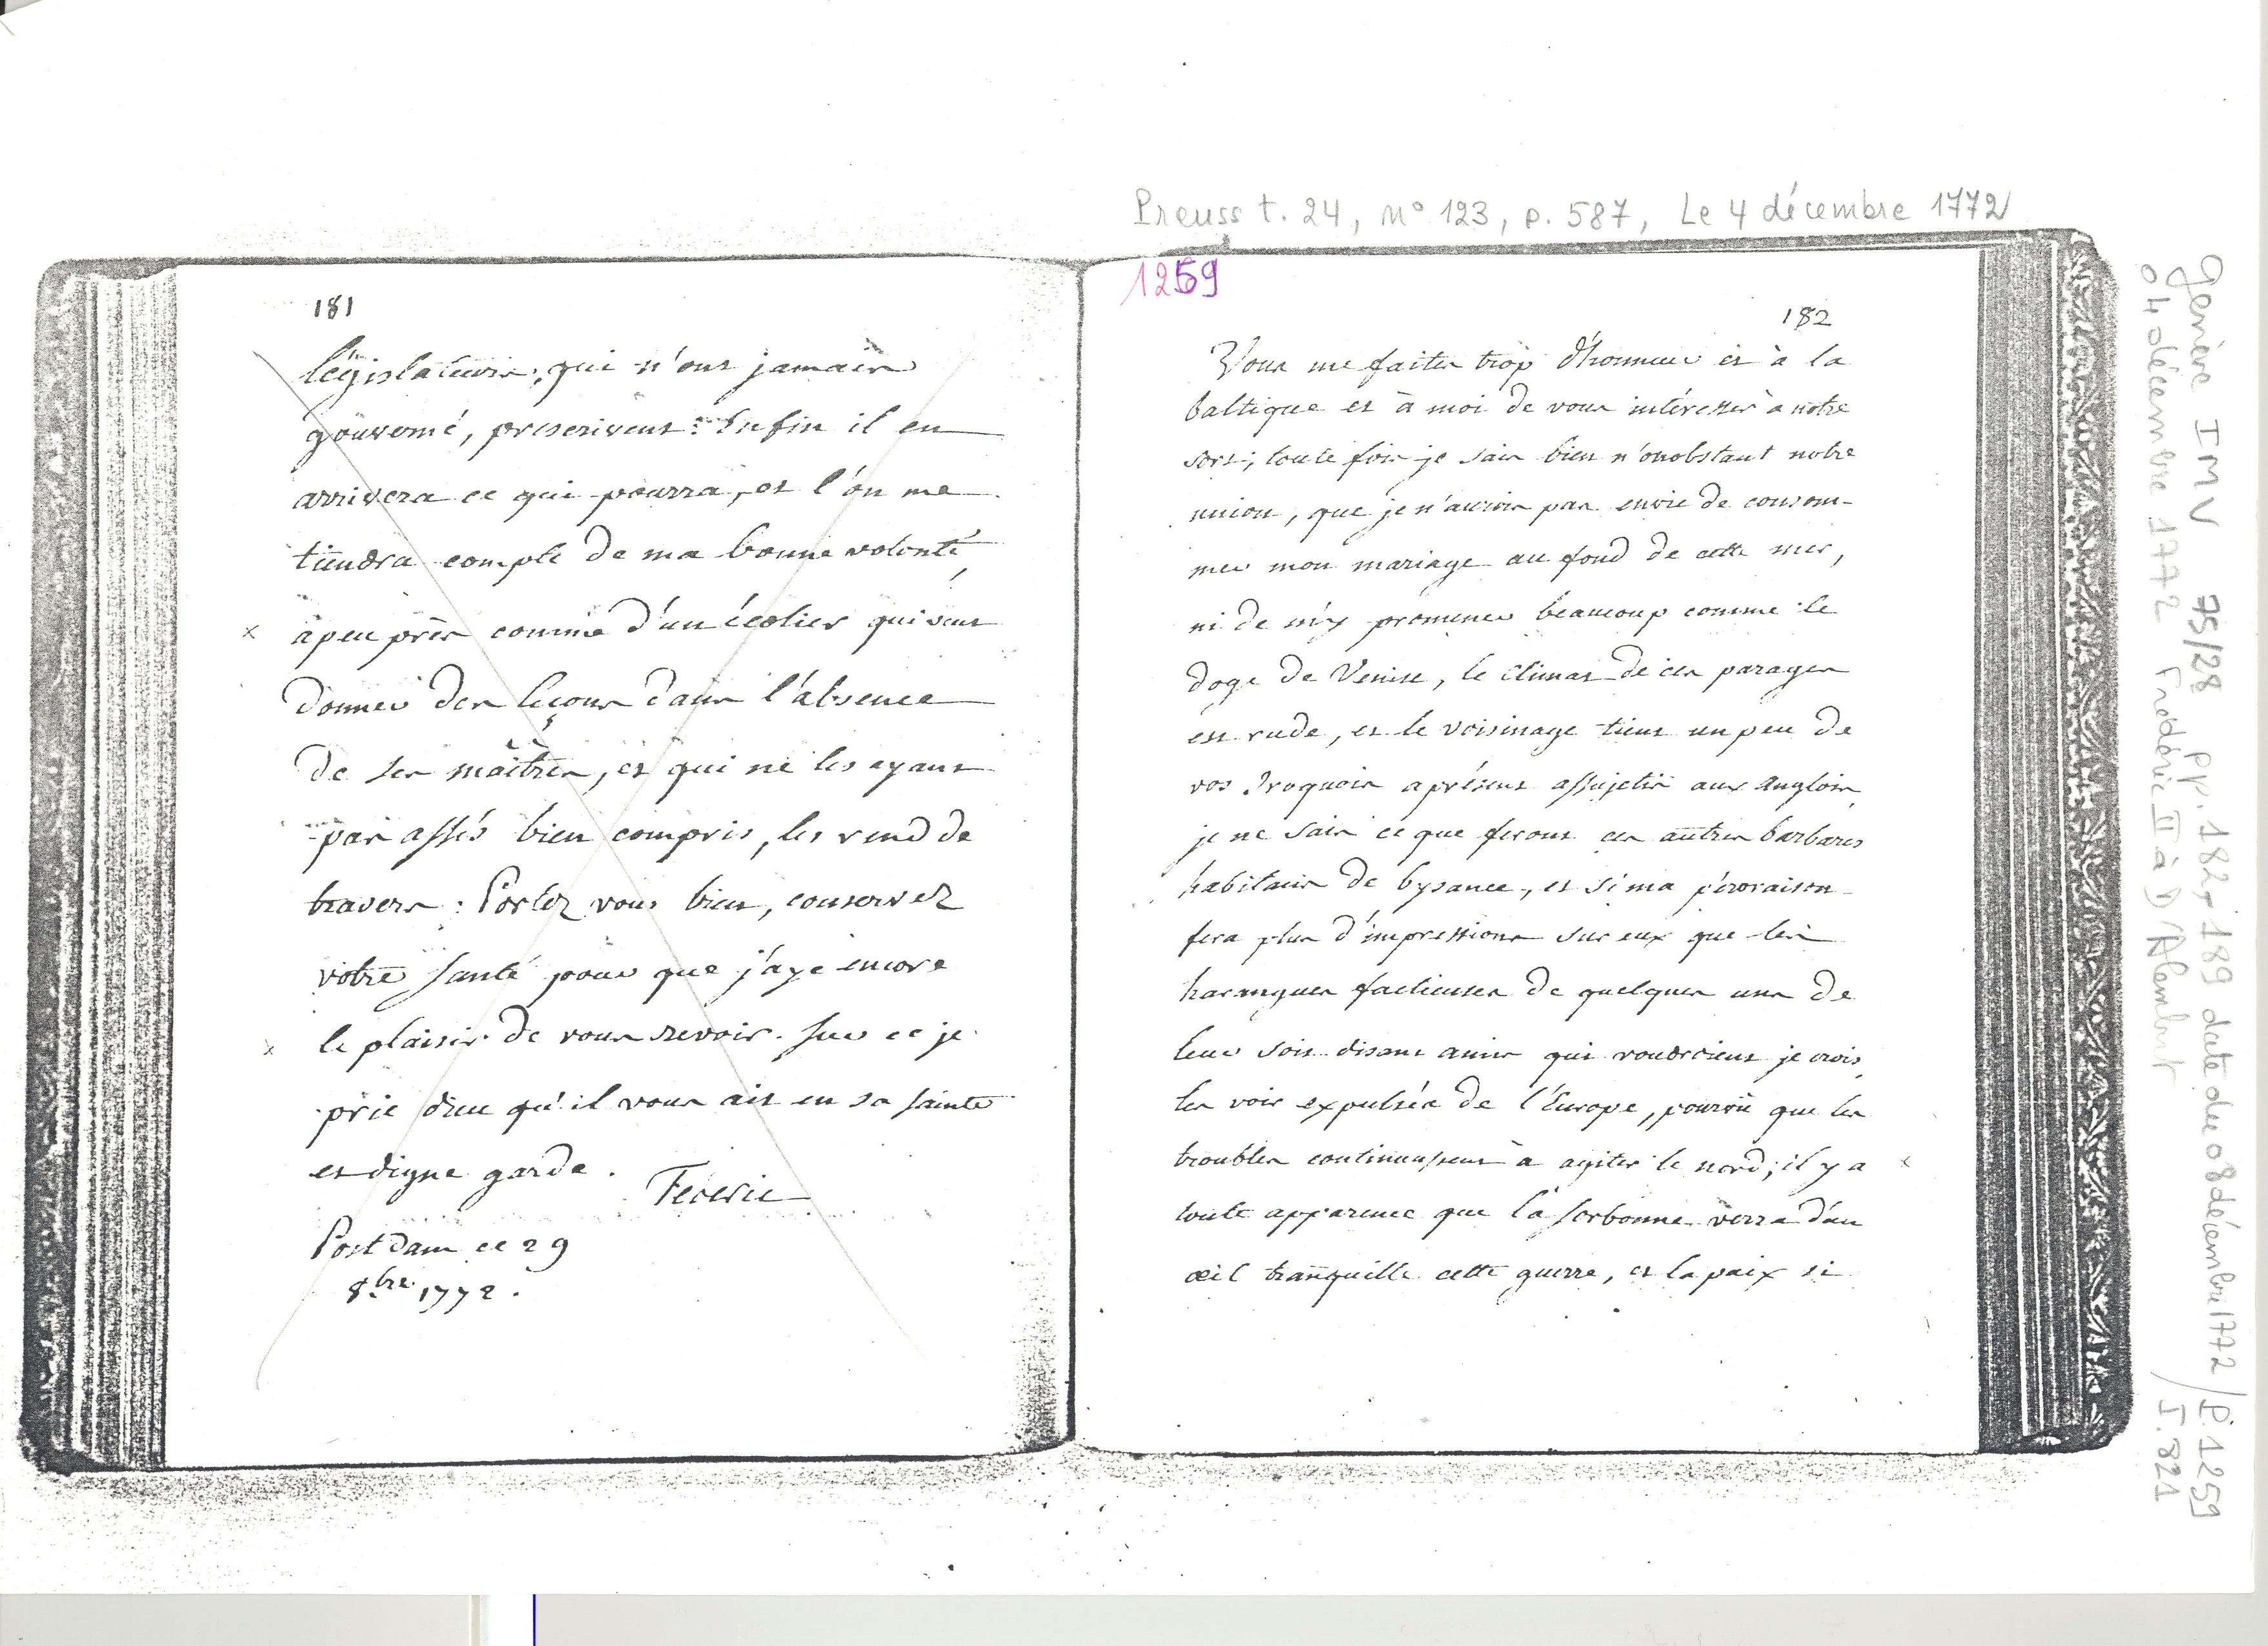 Preuss t. 24, N° 123, p. 587, Le 4 décembre 1772
1259
181
législateurs, qui n'ont jamais
gouverné, prescrivent: Enfin il en
arrivera ce qui pourra, et l'on me
tiendra compte de ma bonne volonté,
àpeu près comme d'un écolier qui veut
donner des leçons dans l'absence
de ses maîtres, et qui ne les ayant
pas assés bien compris, les rend de
travers: Portez vous bien, conservez
votre santé pour que j'aye encore
le plaisir de vous revoir. Sur ce je
prie dieu qu'il vous ait en sa sainte
et digne garde.
Federic
Postdam ce 29
8bre 1772.
182
Vous me faites trop d'honneur et à la
baltique et à moi de vous intéresser à notre
sort; toute fois je sais bien n'onobstant notre
union, que je n'aurois pas envie de consom-
mer mon mariage au fond de cette mer,
ni de m'y promener beaucoup comme le
doge de Venise, le climat de ces parages
est rude, et le voisinage tient un peu de
vos Iroquois aprésent assujetis aux Anglois,
je ne sais ce que feront ces autres barbares
habitans de bysance, et si ma péroraison
fera plus d'impressions sur eux que les
harangues factieuses de quelques uns de
leur soit disant amis qui voudroient je crois,
les voir expulsés de l'Europe, pourvû que les
troubles continuassent à agiter le nord; il y a
toute apparence que la sorbonne verra d'un
œil tranquille cette guerre, et la paix si
Genève IMV 75/28 pp. 182-189 date du 08 décembre 1772 / P 1259
04 décembre 1772 Frédéric II à D'Alembert I. 821